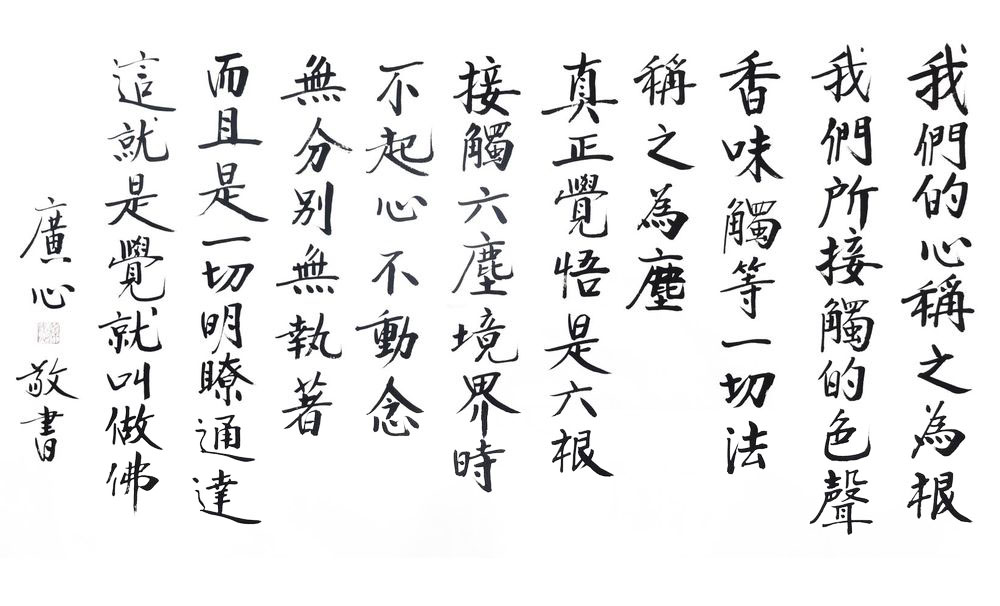 我們的心稱之為根
我們所接觸的色聲
香味觸等一切法
稱之為塵
真正覺悟是六根
接觸六塵境界時
不起心不動念
無分別無執著
而且是一切明瞭通達
這就是覺就叫做佛
廣心敬書